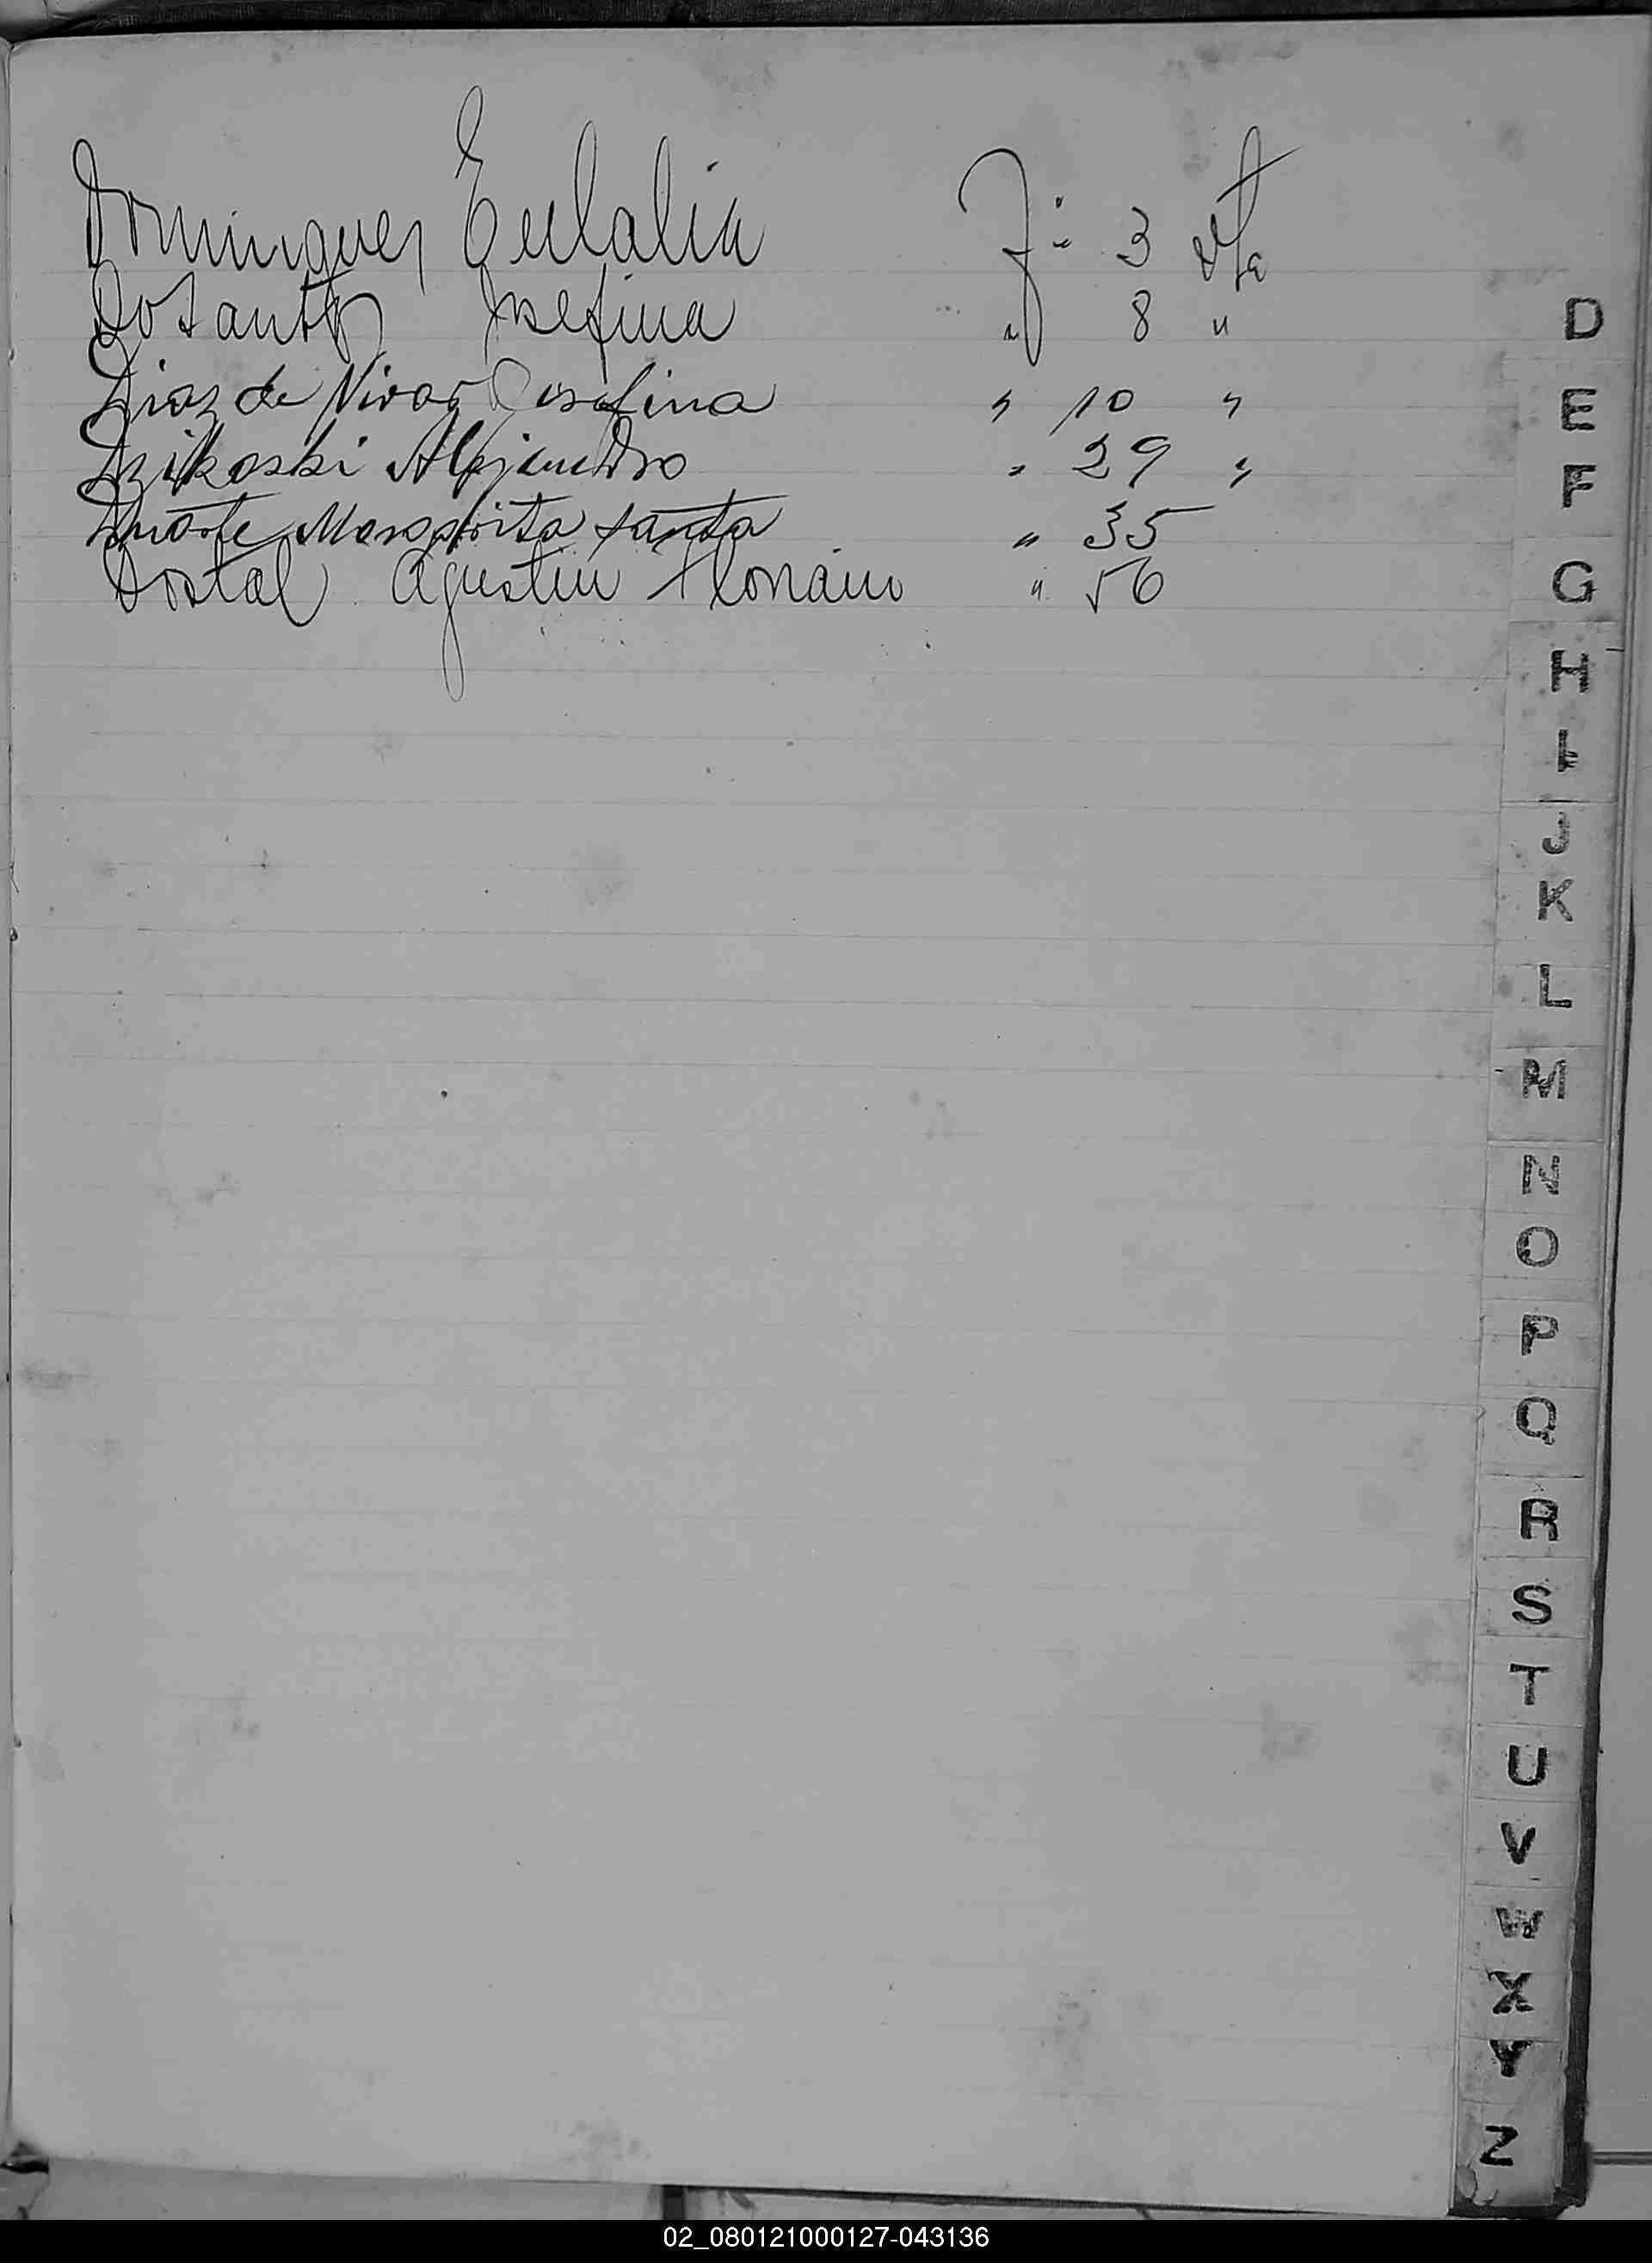 Dominguez Eulalia F: 3 vta
DoSantos Josefina " 8 "
Diaz de Vivar Josefina " 10 "
Dzikoski Alejandro " 29 "
Duarte Margarita Santa " 35
Dostal Agustin Floriano " 56
D
E
F
G
H
I
J
K
L
M
N
O
P
Q
R
S
T
U
V
W
X
Y
Z
02_080121000127-043136